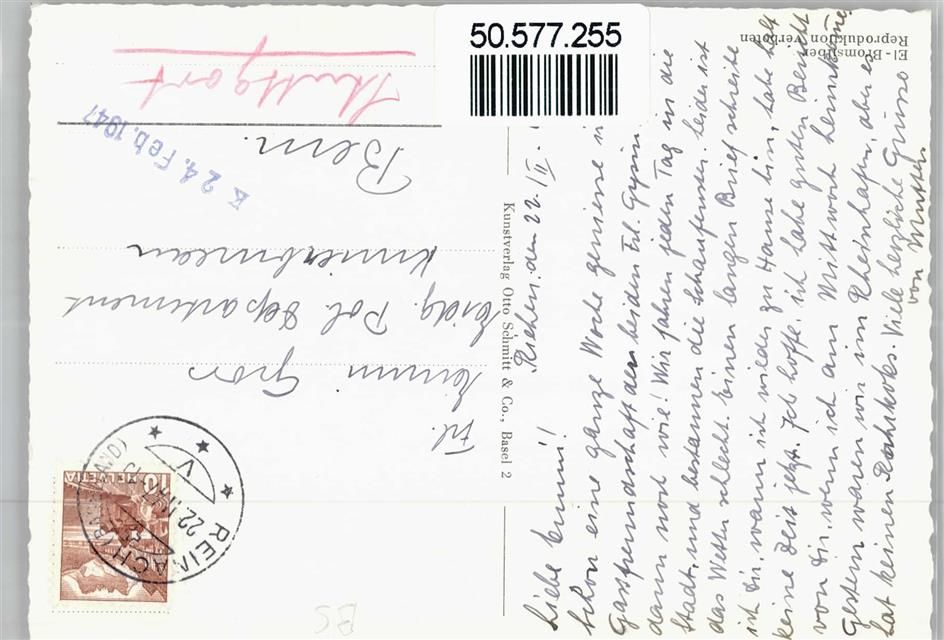 50.577.255
El-Bromsilber
Reproduktion verboten
Kunstverlag Otto Schmitt & Co., Basel 2
Riehen, den 22./II.
Liebe Emmi!
Schon eine ganze Woche geniesse i
Gastfreundschaft der beiden Frl. Gysin
dann noch wie! Wir fahren jeden Tag in die
Stadt, und bestaunen die Schaufenster. Leider ist
das Wetter schlecht. Einen langen Brief schreibe
ich Dir, wann ich wieder zu Hause bin, habe halt
keine Zeit jetzt. Ich hoffe, ich habe guten Bericht
von Dir, wenn ich am Mittwoch heimkomme.
Gestern waren wir im Rheinhafen, aber es
hat keinen Kochskoks. Viele herzliche Grüsse
von Mutter.
Frl.
Emmi Gross
Eidg. Pol. Departement
Bern.
Stuttgart
E 24. Feb. 1947
REINACH (BASELLAND)
22.II.47
V
HELVETIA
10
BS